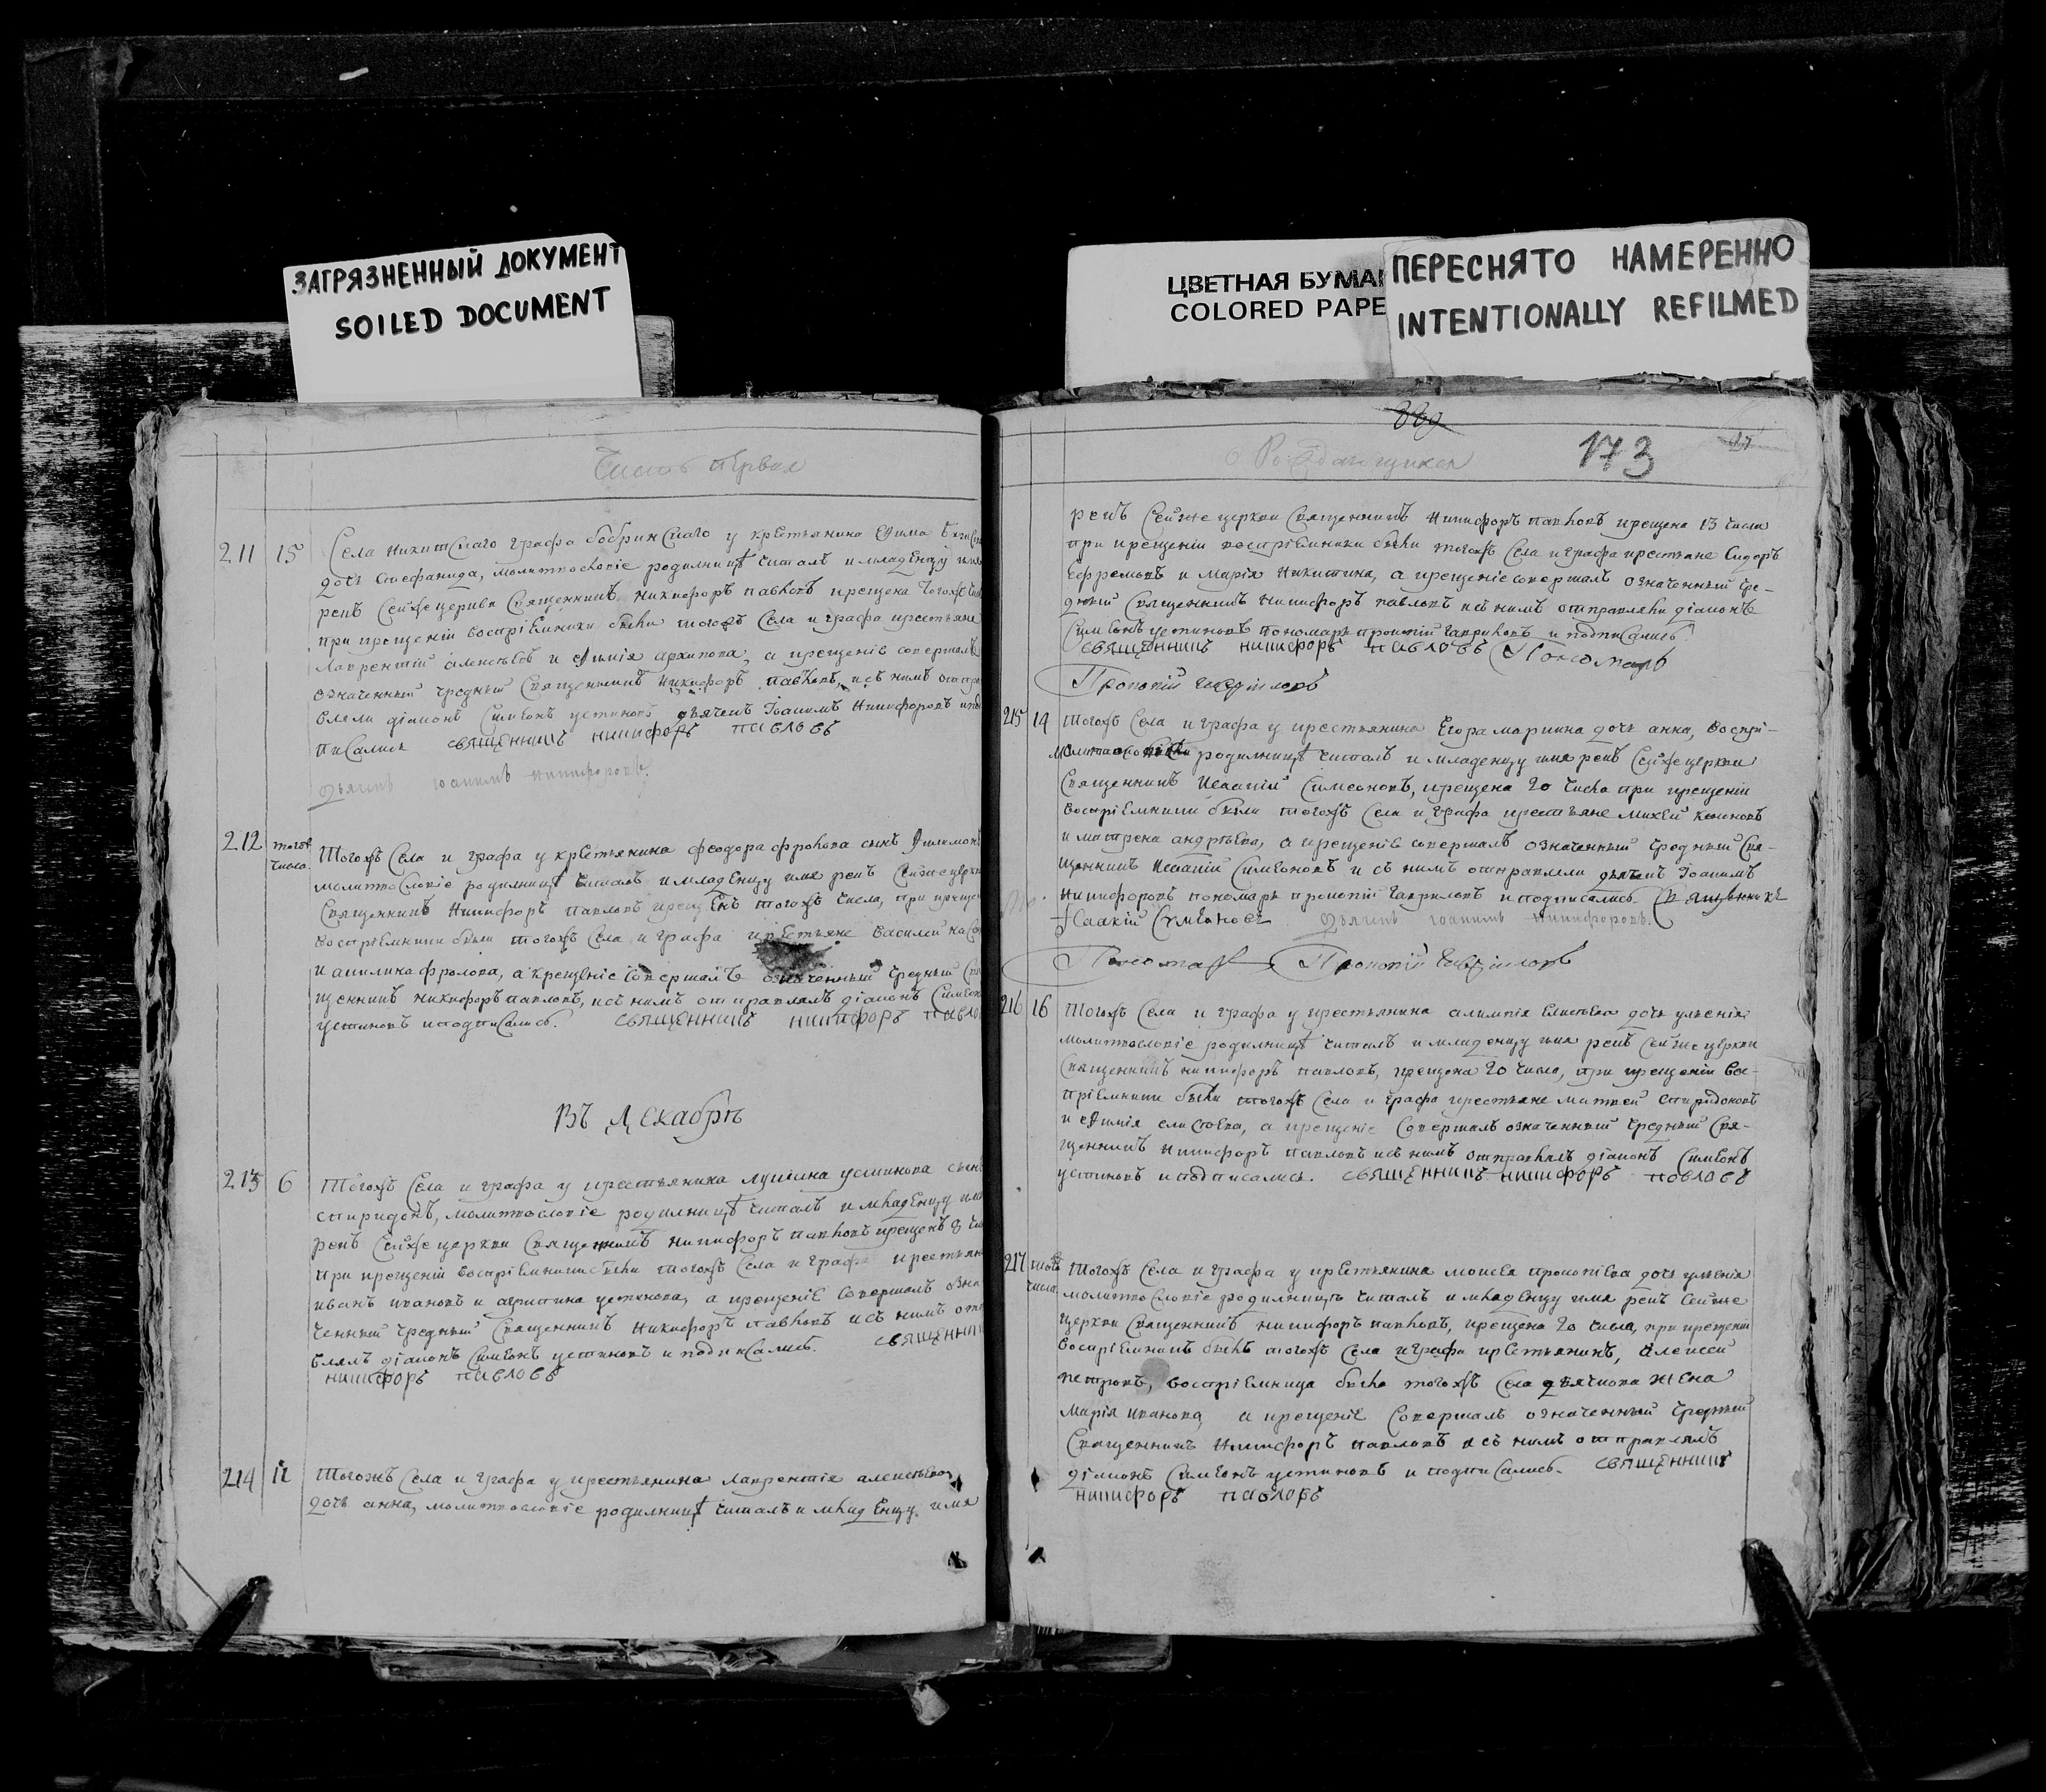 ЗАГРЯЗНЕННЫЙ ДОКУМЕНТ
SOILED DOCUMENT
ЦВЕТНАЯ БУМАГ
COLORED PAPE
ПЕРЕСНЯТО НАМЕРЕННО
INTENTIONALLY REFILMED
Часть первая
211 15 Села Никитскаго графа бобринскаго у крестьянина
дочь стефанида, молитвословіе родилницѣ читалъ и младенцу имя
рекъ Сейже церкви Священникъ никифоръ павловъ крещена тогожъ
при крещеніи воспріемники были тогожъ Села и графа крестьяне
Лаврентій алексѣевъ и архипова, а крещеніе совершалъ
означенный чредный Священникъ никифоръ павловъ, исъ нимъ отпра
вляли діаконъ Симеонъ устиновъ дьячекъ Іоакимъ Никифоровъ ипод
писались священникъ никифоръ павловъ
дьячекъ иоакимъ никифоровъ.
212 тогожъ числа Тогожъ Села и графа у крестьянина феодора фролова сынъ Филимонъ
молитвословіе родилницѣ читалъ имладенцу имя рекъ Сейже церкви
Священникъ Никифоръ павловъ крещенъ тогожъ числа, при креще
воспріемники были тогожъ Села и графа крестьяне василей
и акилина фролова, а крещеніе совершалъ означенный чредный Свя
щенникъ никифоръ павловъ, исъ нимъ отправлялъ діаконъ Симеонъ
устиновъ иподписались. священникъ никифоръ павло
Въ Декабрѣ
213 6 Тогожъ Села и графа у крестьянина лукіана устинова сынъ
спиридонъ, молитвословіе родилницѣ читалъ и младенцу имя
рекъ Сейже церкви Священникъ никифоръ павловъ крещенъ 8 чи
при крещеніи воспріемники были тогожъ Села и графа крестьян
иванъ ивановъ и устинова, а крещеніе совершалъ озна
ченный чредный Священникъ никифоръ павловъ исъ нимъ отпра
влялъ діаконъ Симеонъ устиновъ и подписались. священни
никифоръ павловъ
214 Тогожъ Села и графа у крестьянина лаврентія алексѣева
дочь анна, молитвословіе родилницѣ читалъ и младенцу имя
о Рождающихся
173
рекъ Сейже церкви Священникъ никифоръ павловъ крещена 13 числа
при крещеніи воспріемники были тогожъ Села и графа крестьяне Сидоръ
Ефремовъ и Марія Никитина, а крещеніе совершалъ означенный чре-
дный Священникъ никифоръ павловъ исъ нимъ отправляли діаконъ
Симеонъ устиновъ пономарь прокопій гавриловъ и подписались.
священникъ никифоръ павловъ Пономарь
Прокопій Гавриловъ
215 14 Тогожъ Села и графа у крестьянина Егора маркина дочь анна,
родилницѣ читалъ и младенцу имя рекъ Сейже церкви
Священникъ Исаакій Симеоновъ, крещена 20 числа при крещеніи
воспріемники были тогожъ Села и графа крестьяне Михей
и матрена андрѣева, а крещеніе совершалъ означенный чредный Свя-
щенникъ Исаакій Симеоновъ и съ нимъ отправляли дьячекъ Іоакимъ
никифоровъ пономарь прокопій гавриловъ и подписались. Священникъ
Исаакій Симеоновъ дьячекъ иоакимъ никифоровъ.
Пономарь Прокопій Гавриловъ
216 16 Тогожъ Села и графа у крестьянина алимпія дочь уліенія
молитвословіе родилницѣ читалъ и младенцу имя рекъ Сейже церкви
Священникъ никифоръ павловъ, крещена 20 числа, при крещеніи вос-
пріемники были тогожъ Села и графа крестьяне матвей спиридоновъ
и а крещеніе Совершалъ означенный чредный Свя-
щенникъ никифоръ павловъ исъ нимъ отправлялъ діаконъ Симеонъ
устиновъ и подписались. священникъ никифоръ павловъ
217 тогожъ числа Тогожъ Села и графа у крестьянина моисея прокопіева дочь уліенія
молитвословіе родилницѣ читалъ и младенцу имя рекъ Сейже
церкви Священникъ никифоръ павловъ, крещена 20 числа, при крещеніи
воспріемникъ былъ тогожъ Села и графа крестьянинъ, алексей
петровъ, воспріемница была тогожъ Села дьячкова жена
марія иванова, а крещеніе Совершалъ означенный чредный
Священникъ Никифоръ павловъ и съ нимъ отправлялъ
діаконъ Симеонъ устиновъ и подписались. священникъ
никифоръ павловъ